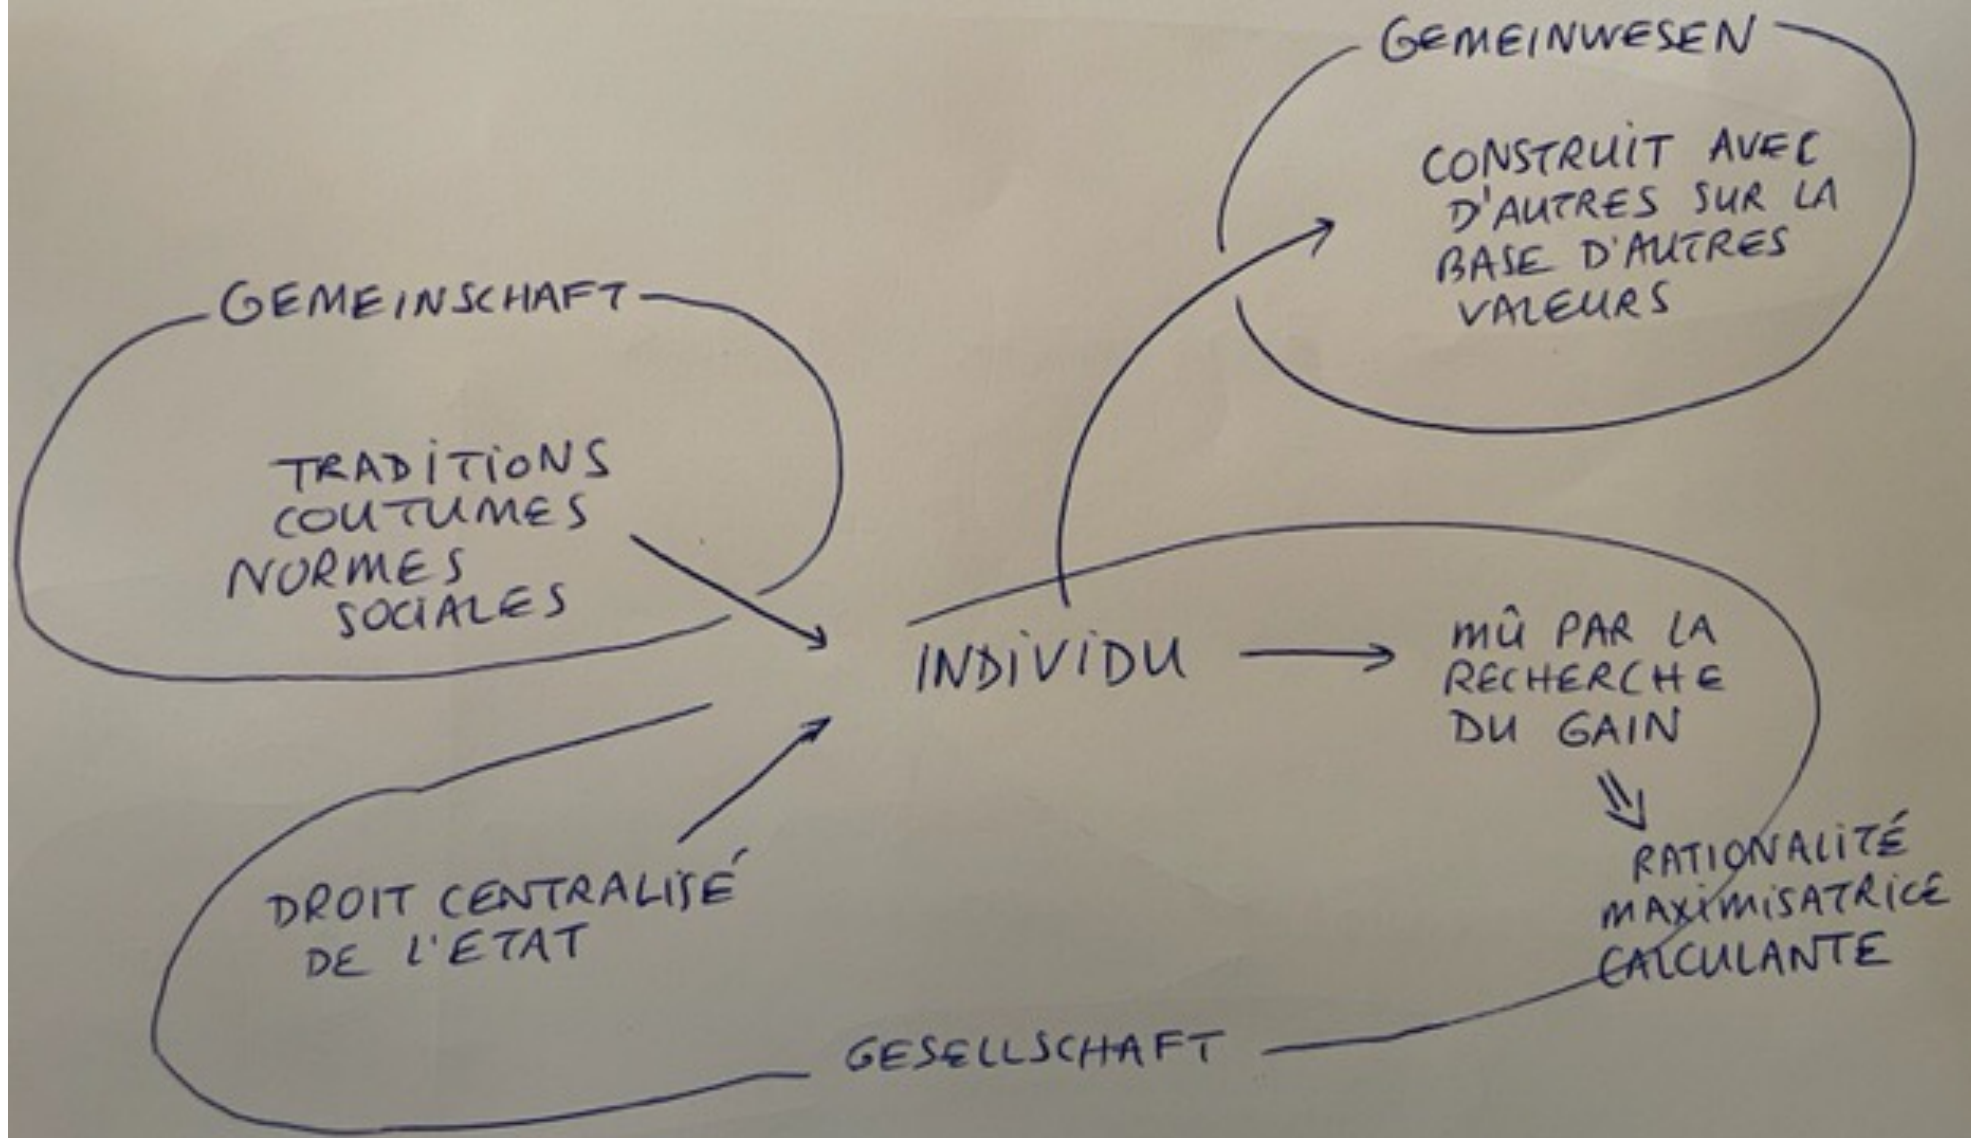 GEMEINWESEN
CONSTRUIT AVEC
D'AUTRES SUR LA
BASE D'AUTRES
VALEURS
GEMEINSCHAFT
TRADITIONS
COUTUMES
NORMES
SOCIALES
INDIVIDU
MÛ PAR LA
RECHERCHE
DU GAIN
RATIONALITÉ
MAXIMISATRICE
CALCULANTE
DROIT CENTRALISÉ
DE L'ETAT
GESELLSCHAFT